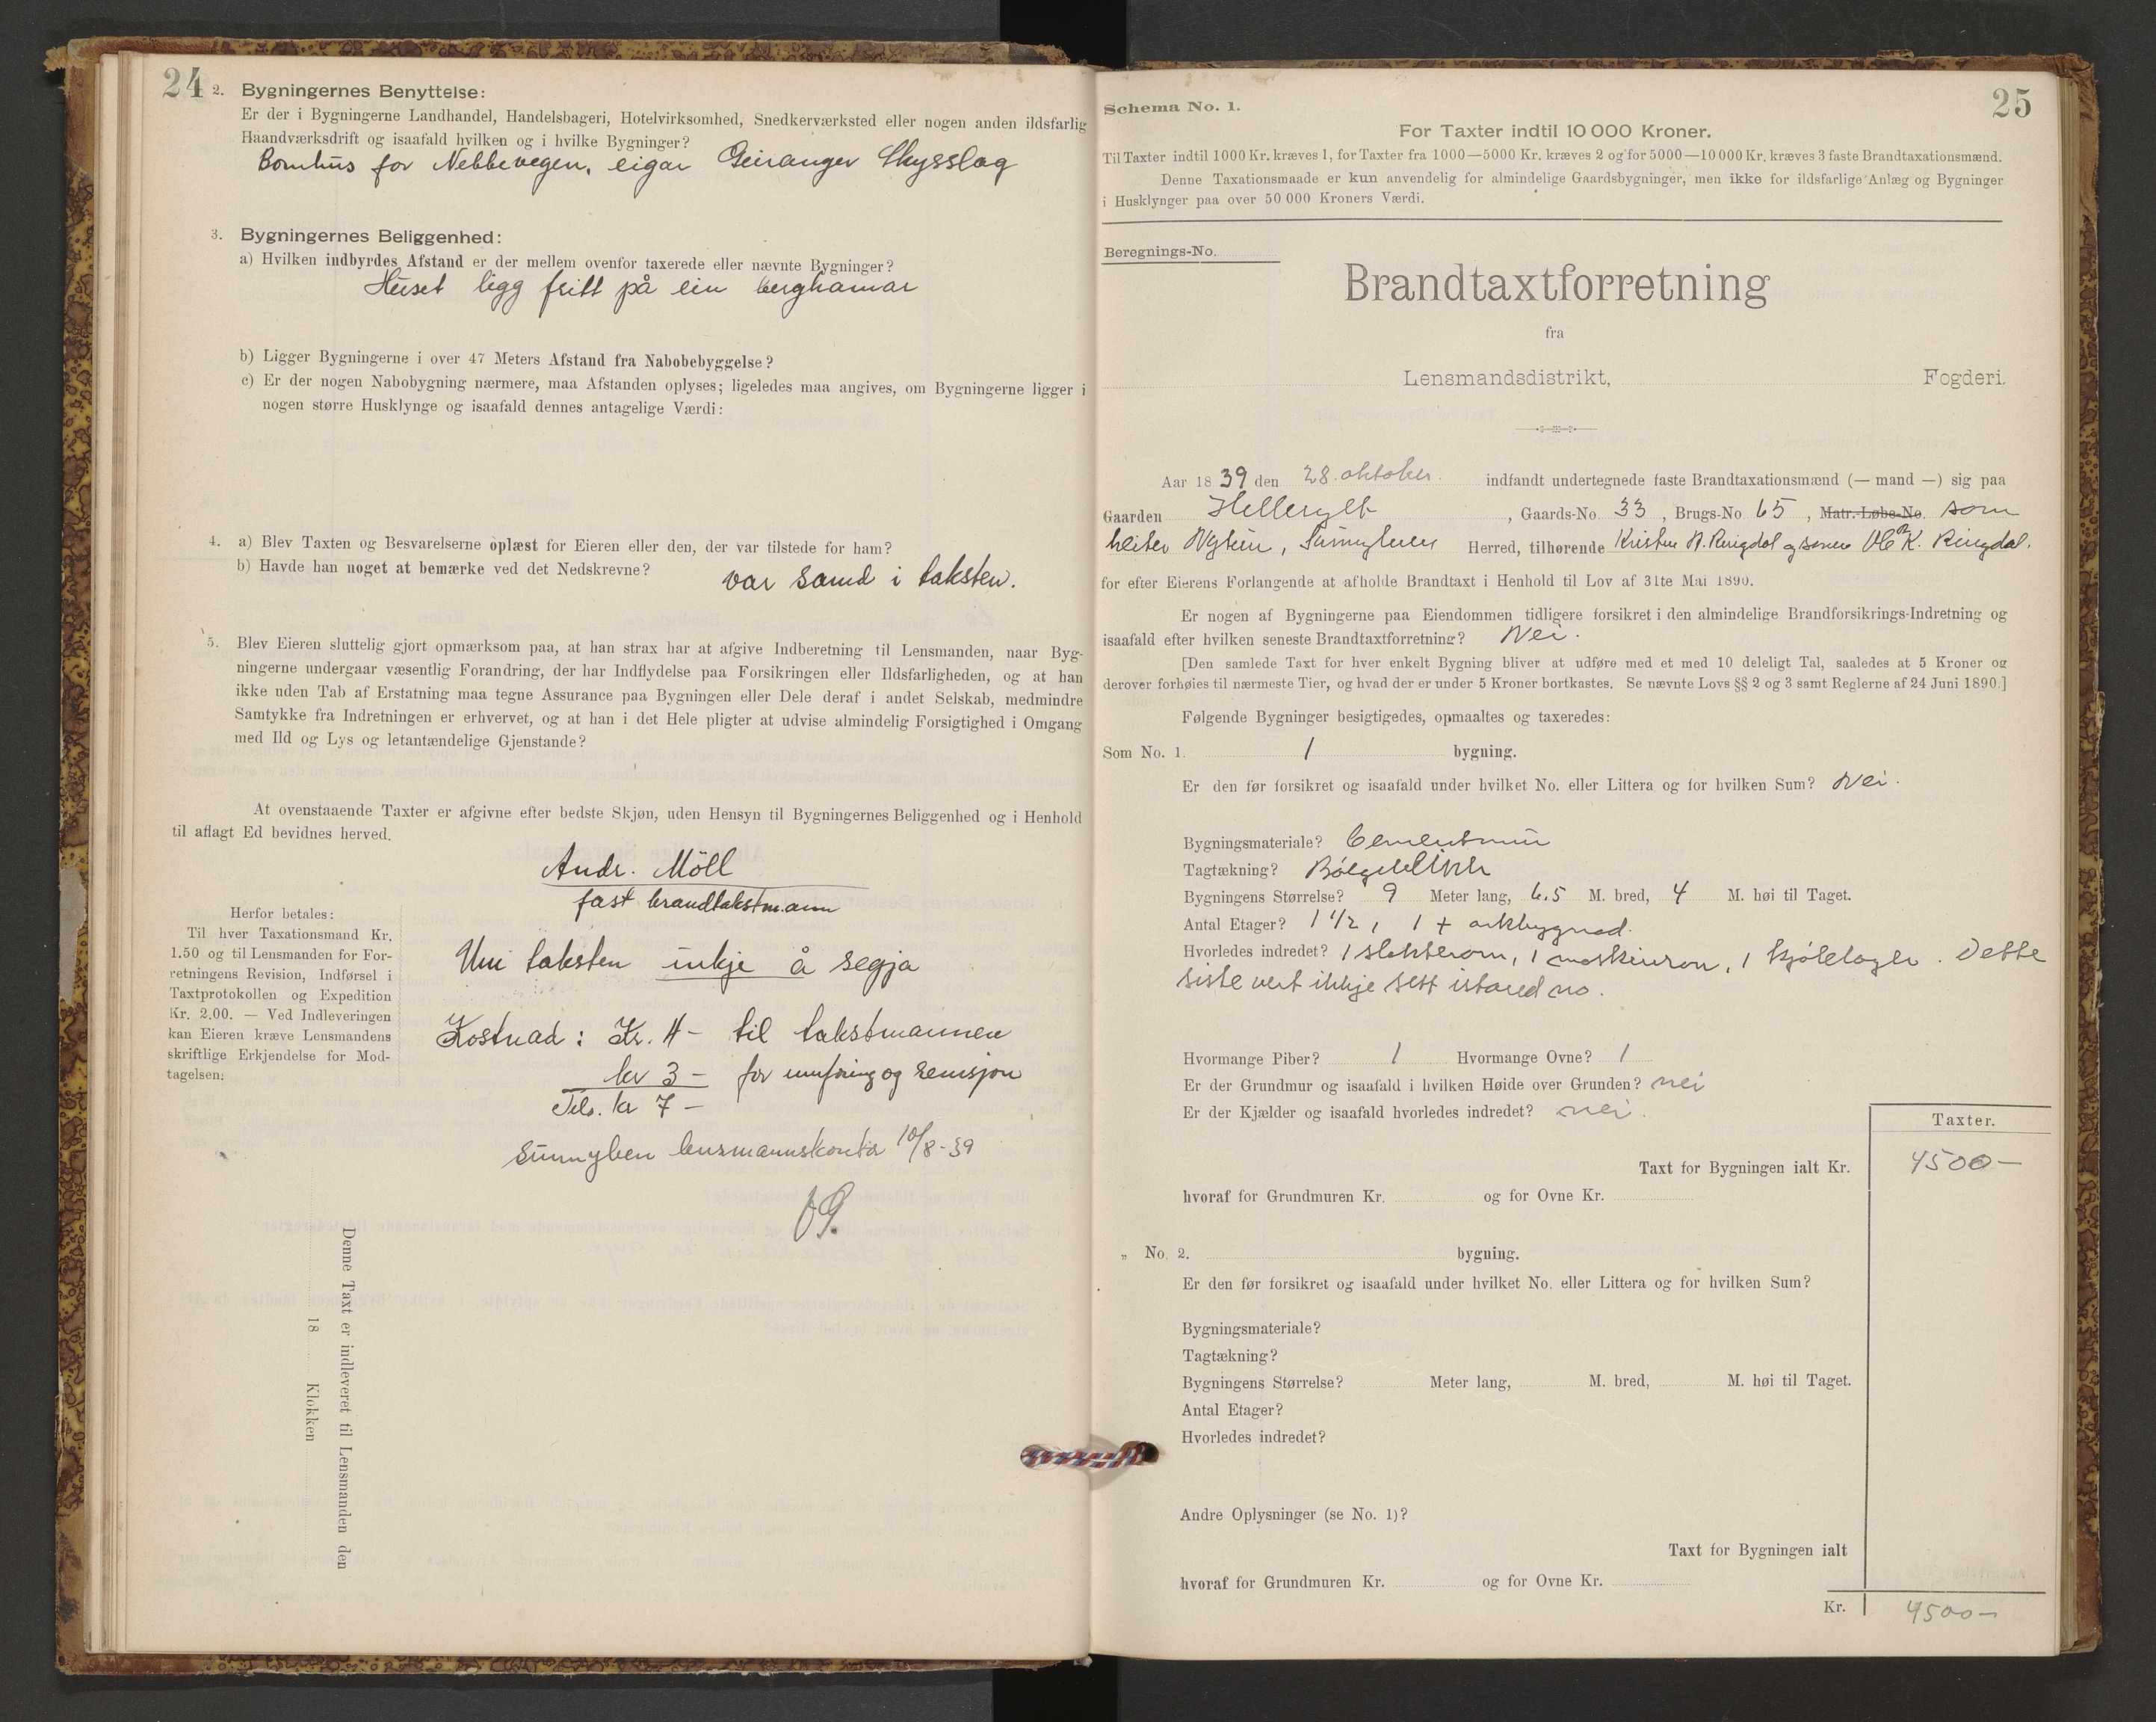 24
2. Bygningernes Benyttelse:
Er der i Bygningerne Landhandel, Handelsbageri, Hotelvirksomhed, Snedkerværksted eller nogen anden ildsfarlig
Haandværksdrift og isaafald hvilken og i hvilke Bygninger?
Bomhus for Nebbevegen, eigar Geiranger Skysslag
3. Bygningernes Beliggenhed:
a) Hvilken indbyrdes Afstand er der mellem ovenfor taxerede eller nævnte Bygninger?
Huset ligg fritt på ein berghamar
b) Ligger Bygningerne i over 47 Meters Afstand fra Nabobebyggelse?
c) Er der nogen Nabobygning nærmere, maa Afstanden oplyses; ligeledes maa angives, om Bygningerne ligger i
nogen større Husklynge og isaafald dennes antagelige Værdi:
4. a) Blev Taxten og Besvarelserne oplæst for Eieren eller den, der var tilstede for ham?
b) Havde han noget at bemærke ved det Nedskrevne?
var samd i taksten.
5. Blev Eieren sluttelig gjort opmærksom paa, at han strax har at afgive Indberetning til Lensmanden, naar Byg-
ningerne undergaar væsentlig Forandring, der har Indflydelse paa Forsikringen eller Ildsfarligheden, og at han
ikke uden Tab af Erstatning maa tegne Assurance paa Bygningen eller Dele deraf i andet Selskab, medmindre
Samtykke fra Indretningen er erhvervet, og at han i det Hele pligter at udvise almindelig Forsigtighed i Omgang
med Ild og Lys og letantændelige Gjenstande?
At ovenstaaende Taxter er afgivne efter bedste Skjøn, uden Hensyn til Bygningernes Beliggenhed og i Henhold
til aflagt Ed bevidnes herved.
Andr. Möll
fast brandtakstmann
Herfor betales:
Til hver Taxationsmand Kr.
1.50 og til Lensmanden for For-
retningens Revision, Indførsel i
Taxtprotokollen og Expedition
Kr. 2.00. — Ved Indleveringen
kan Eieren kræve Lensmandens
skriftlige Erkjendelse for Mod-
tagelsen.
Um taksten inkje å segja
Kostnad: Kr. 4 - til takstmannen
kr 3 - for innføring og revisjon
Tils. kr 7 -
Sunnylven lensmannskontor 10/8-39
Denne Taxt er indleveret til Lensmanden den
18 Klokken
25
Schema No. 1.
For Taxter indtil 10 000 Kroner.
Til Taxter indtil 1000 Kr. kræves 1, for Taxter fra 1000—5000 Kr. kræves 2 og for 5000—10000 Kr. kræves 3 faste Brandtaxationsmænd.
Denne Taxationsmaade er kun anvendelig for almindelige Gaardsbygninger, men ikke for ildsfarlige Anlæg og Bygninger
i Husklynger paa over 50 000 Kroners Værdi.
Beregnings-No.
Brandtaxtforretning
fra
Lensmandsdistrikt, Fogderi.
Aar 1839 den 28. oktober indfandt undertegnede faste Brandtaxationsmænd (— mand —) sig paa
Gaarden Hellesylt, Gaards-No. 33, Brugs-No 65, Matr.-Løbe-No. som
heiter Nytun, Sunnylven Herred, tilhørende Kristen N. Ringdal og sonen Ole K. Ringdal.
for efter Eierens Forlangende at afholde Brandtaxt i Henhold til Lov af 31te Mai 1890.
Er nogen af Bygningerne paa Eiendommen tidligere forsikret i den almindelige Brandforsikrings-Indretning og
isaafald efter hvilken seneste Brandtaxtforretning? Nei.
[Den samlede Taxt for hver enkelt Bygning bliver at udføre med et med 10 deleligt Tal, saaledes at 5 Kroner og
derover forhøies til nærmeste Tier, og hvad der er under 5 Kroner bortkastes. Se nævnte Lovs §§ 2 og 3 samt Reglerne af 24 Juni 1890.]
Følgende Bygninger besigtigedes, opmaaltes og taxeredes:
Som No. 1. 1 bygning.
Er den før forsikret og isaafald under hvilket No. eller Littera og for hvilken Sum? Nei.
Bygningsmateriale? Cementmur
Tagtækning? Bølgeblikk
Bygningens Størrelse? 9 Meter lang, 6.5 M. bred, 4 M. høi til Taget.
Antal Etager? 1 1/2, 1 + arkbygnad.
Hvorledes indredet? 1 slakterom, 1 maskinrom, 1 kjølelager. Dette
siste vert ikkje sett istand no.
Hvormange Piber? 1 Hvormange Ovne? 1
Er der Grundmur og isaafald i hvilken Høide over Grunden? nei
Er der Kjælder og isaafald hvorledes indredet? nei.
Taxter.
Taxt for Bygningen ialt Kr. 4500 —
hvoraf for Grundmuren Kr. og for Ovne Kr.
„ No. 2. bygning.
Er den før forsikret og isaafald under hvilket No. eller Littera og for hvilken Sum?
Bygningsmateriale?
Tagtækning?
Bygningens Størrelse? Meter lang, M. bred, M. høi til Taget.
Antal Etager?
Hvorledes indredet?
Andre Oplysninger (se No. 1)?
Taxt for Bygningen ialt
hvoraf for Grundmuren Kr. og for Ovne Kr.
Kr. 4500 —